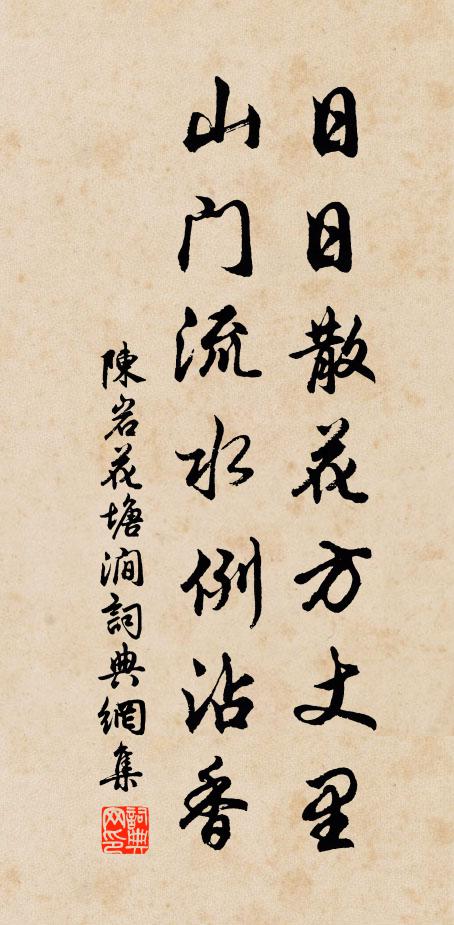 日日散花方丈里
山门流水例沾香
陳岩花塘澗詞典網集
詞典网印